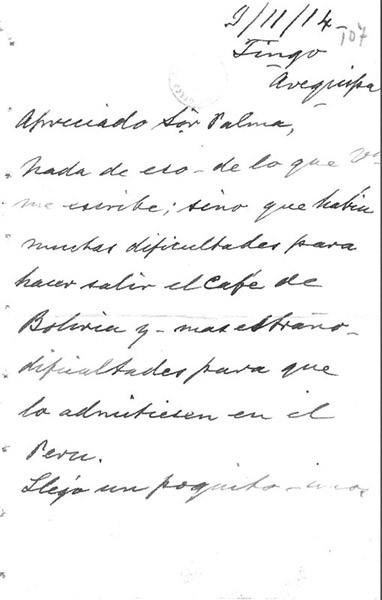 9/11/14-
107
Tingo
Arequipa
Apreciado Sor Palma,
Nada de eso - de lo que Vd
me escribe; sino que habia
muchas dificultades para
hacer salir el café de
Bolivia y - mas estraño -
dificultades para que
lo admitiesen en el
Peru.
Llego un poquito - unos